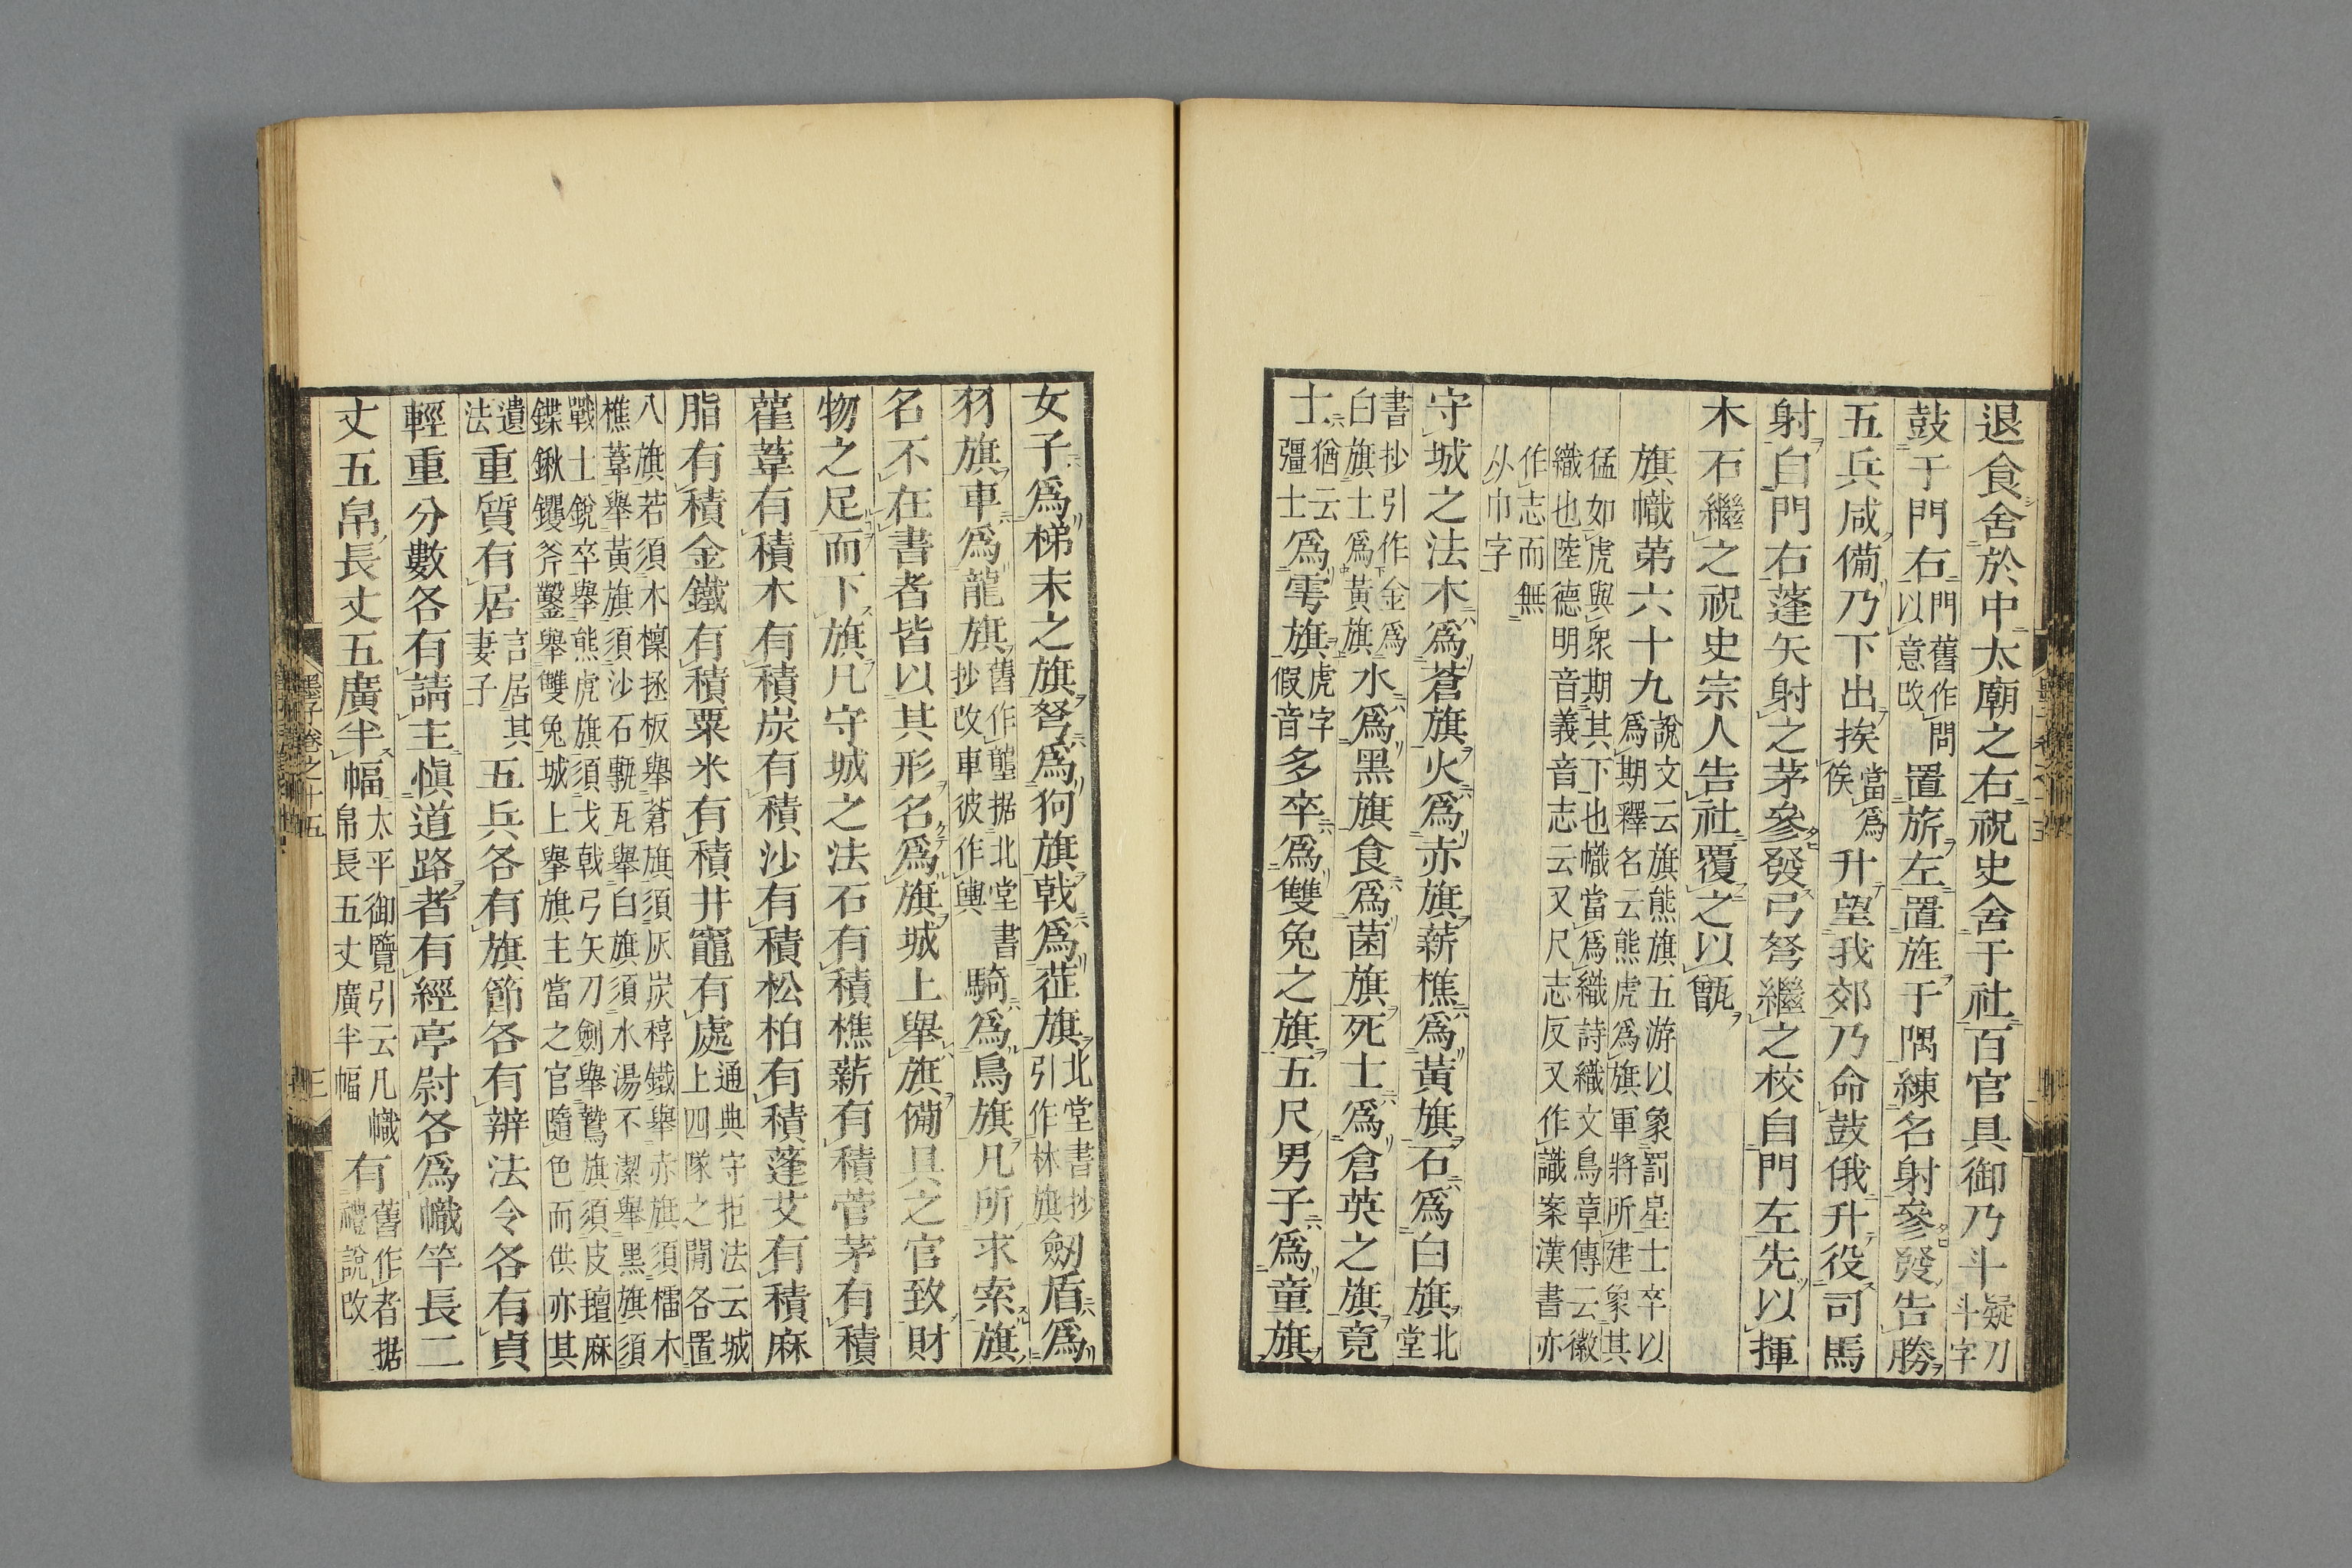 退食舍於中太廟之右祝史舍于社百官具御乃斗疑刀斗字
鼓于門右門舊作問以意改置旂左置旌于隅練名射參發告勝
五兵咸備乃下出挨當為俟升望我郊乃命鼓俄升役司馬
射自門右蓬矢射之茅參發弓弩繼之校自門左先以揮
木石繼之祝史宗人告社覆之以甑
旗幟第六十九說文云旗熊旗五游以象罰星士卒以為期釋名云熊虎為旗軍將所建象其
猛如虎與衆期其下也幟當為織詩織文鳥章傳云徽織也陸德明音義音志云又尺志反又作識案漢書亦
作志而無从巾字
守城之法木為蒼旗火為赤旗薪樵為黃旗石為白旗北堂
書抄引作金為白旗土為黃旗水為黑旗食為菌旗死士為倉英之旗竟
士猶云彊士為雩旗虎字假音多卒為雙兔之旗五尺男子為童旗
女子為梯末之旗弩為狗旗戟為㽵旗北堂書抄引作林旗劒盾為
羽旗車為龍旗舊作壟据北堂書抄改車彼作輿騎為鳥旗凡所求索旗
名不在書者皆以其形名為旗城上舉旗備具之官致財
物之足而下旗凡守城之法石有積樵薪有積菅茅有積
雚葦有積木有積炭有積沙有積松柏有積蓬艾有積麻
脂有積金鐵有積粟米有積井竈有處通典守拒法云城上四隊之閒各置
八旗若須木檁拯板舉蒼旗須灰炭稕鐵舉赤旗須檑木樵葦舉黃旗須沙石甎瓦舉白旗須水湯不潔舉黑旗須
戰士銳卒舉熊虎旗須戈戟弓矢刀劍舉鷙旗須皮㲲麻鍱鍬钁斧鑿舉雙兔城上舉旗主當之官隨色而供亦其
遺法重質有居言居其妻子五兵各有旗節各有辨法令各有貞
輕重分數各有請主慎道路者有經亭尉各為幟竿長二
丈五帛長丈五廣半幅太平御覽引云凡幟帛長五丈廣半幅有舊作者据禮說改
墨子卷之十五
三